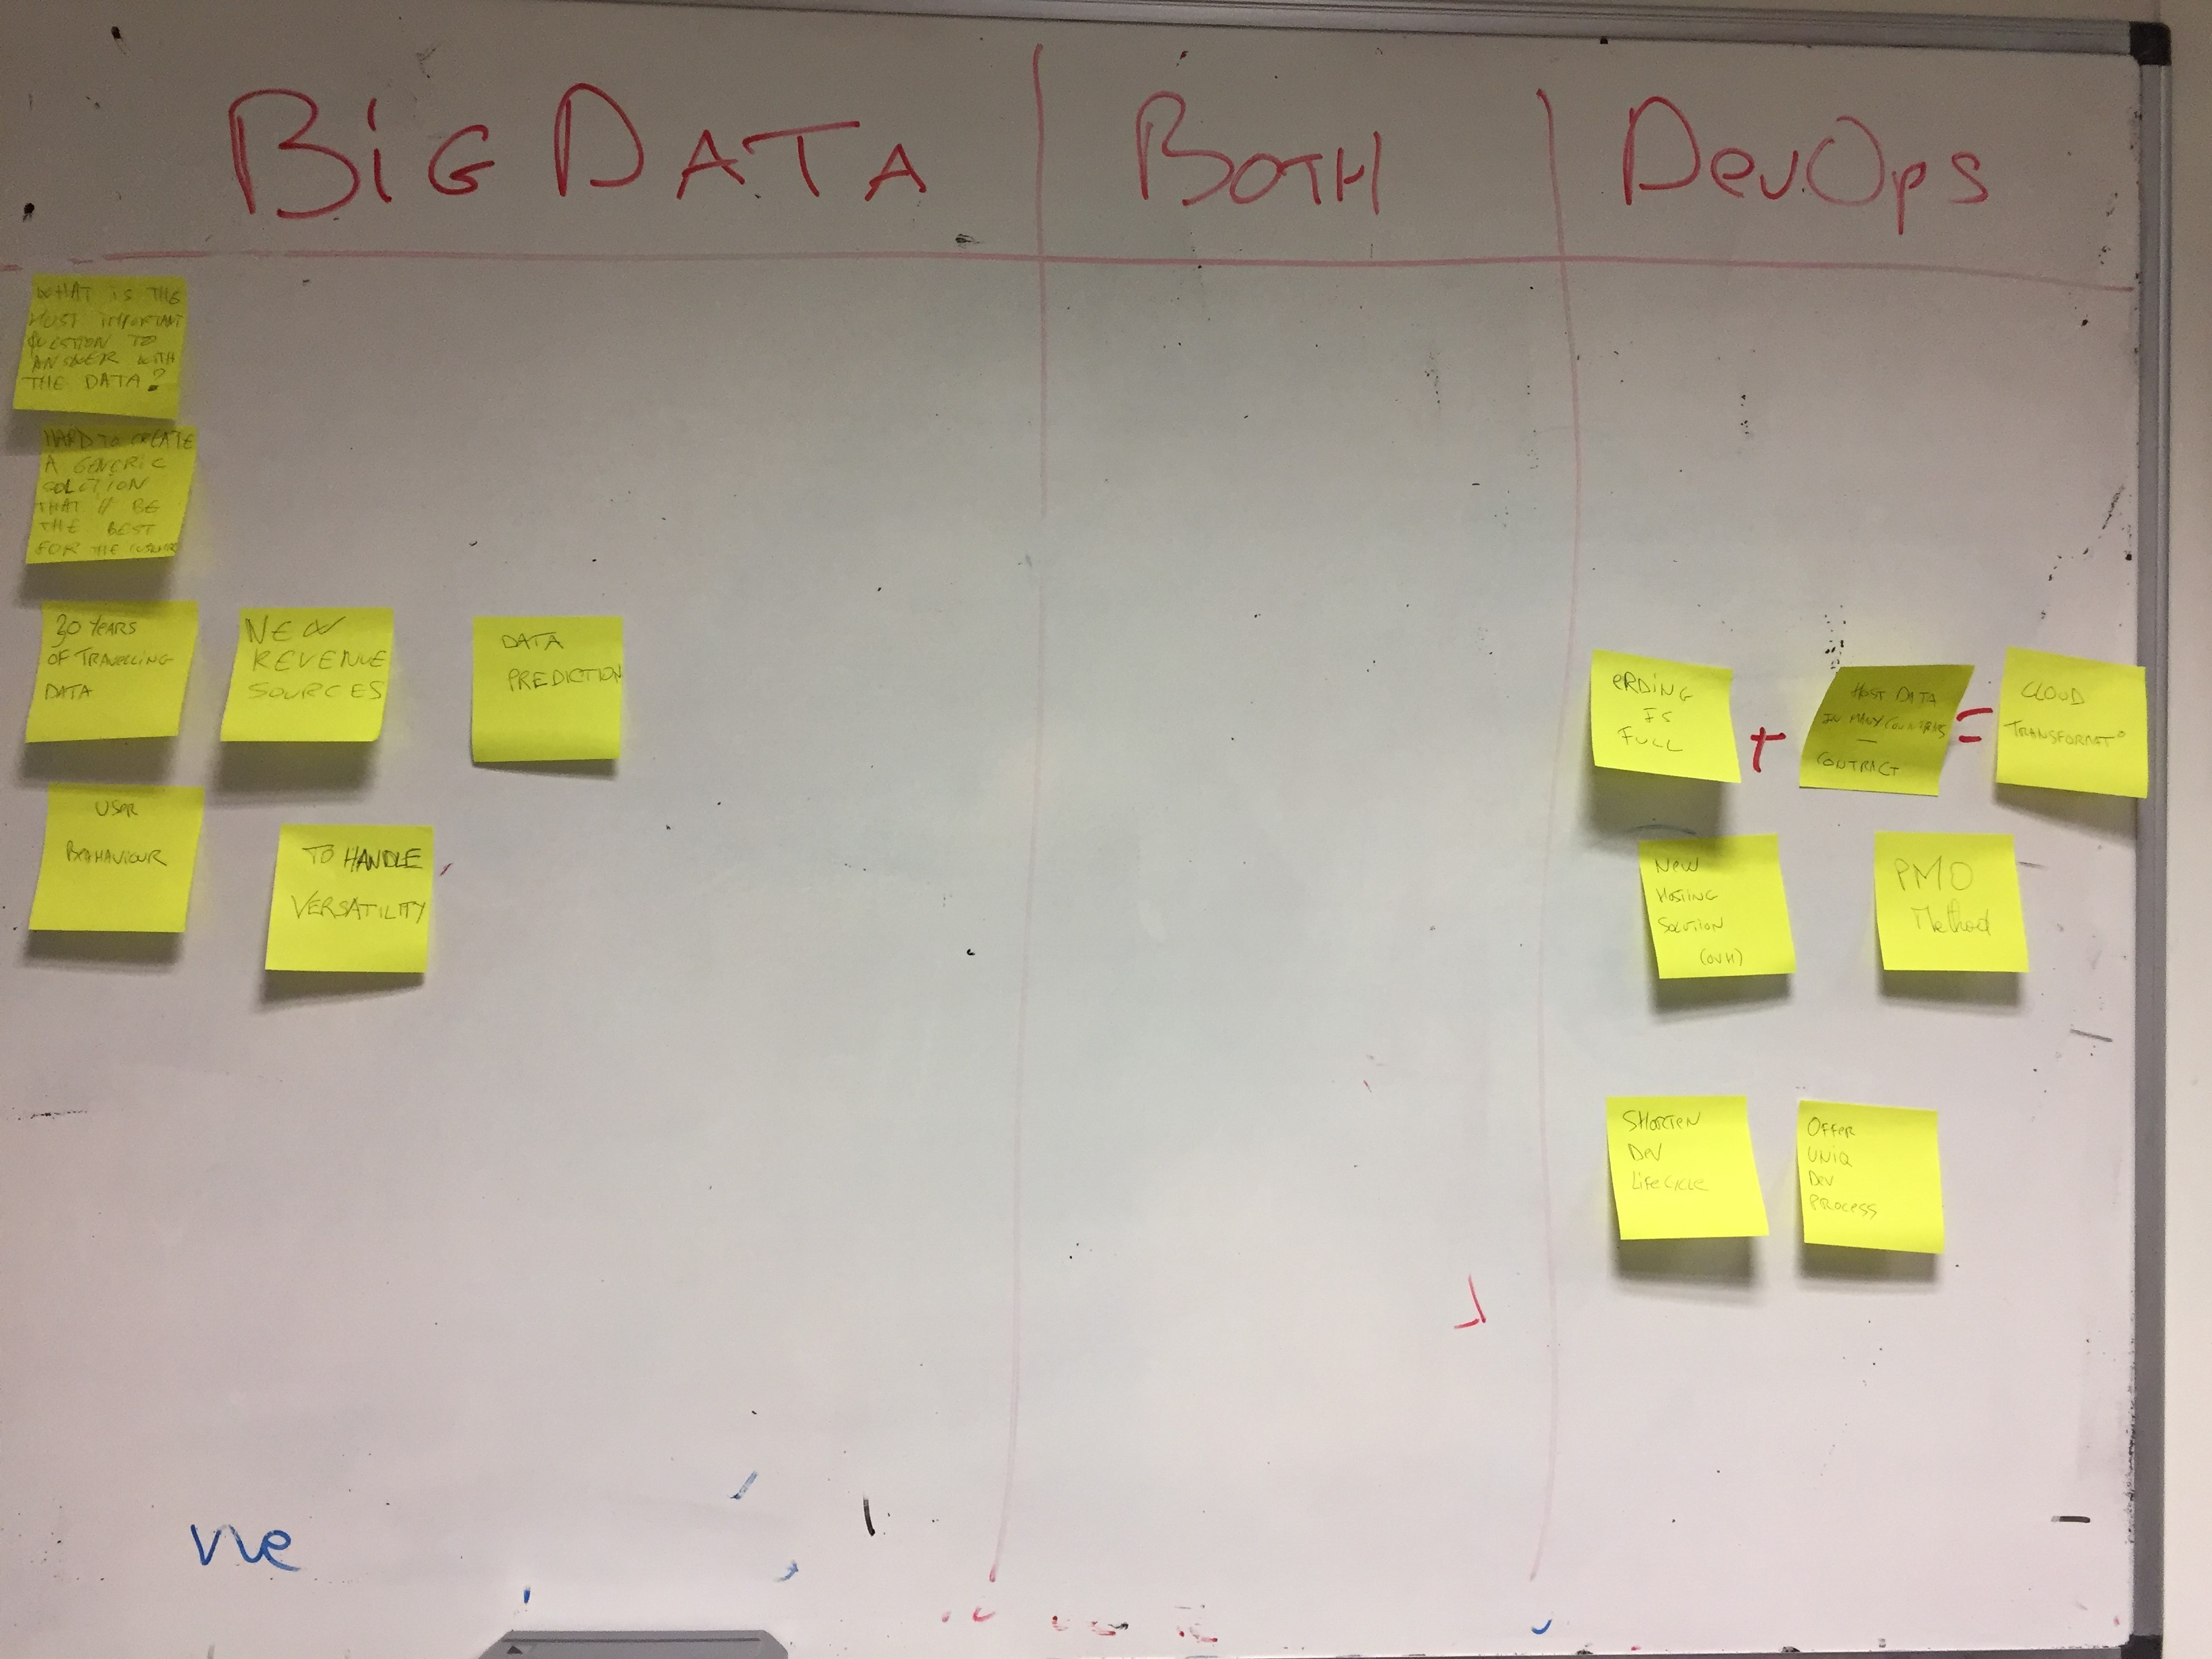 BiG DATA
BOTH
DevOps
WHAT iS THE
MOST IMPORTANT
QUESTION TO
ANSWER WITH
THE DATA?
HARD TO CREATE
A GENERIC
SOLUTION
THAT'll BE
THE BEST
FOR THE
30 YEARS
OF TRAVELLING
DATA
NEW
REVENUE
SOURCES
DATA
PREDICTION
USER
BEHAVIOUR
TO HANDLE
VERSATILITY
ERDiNG
IS
FULL
+
HOST DATA
IN MANY COUNTRIES
—
CONTRACT
=
CLOUD
TRANSFORMAT°
NeW
HOSTiNG
SOLUTiON
(OVH)
PMO
Method
SHORTEN
DeV
LiFeCYCLE
OFFER
UNiQ
DeV
PROCESS
we